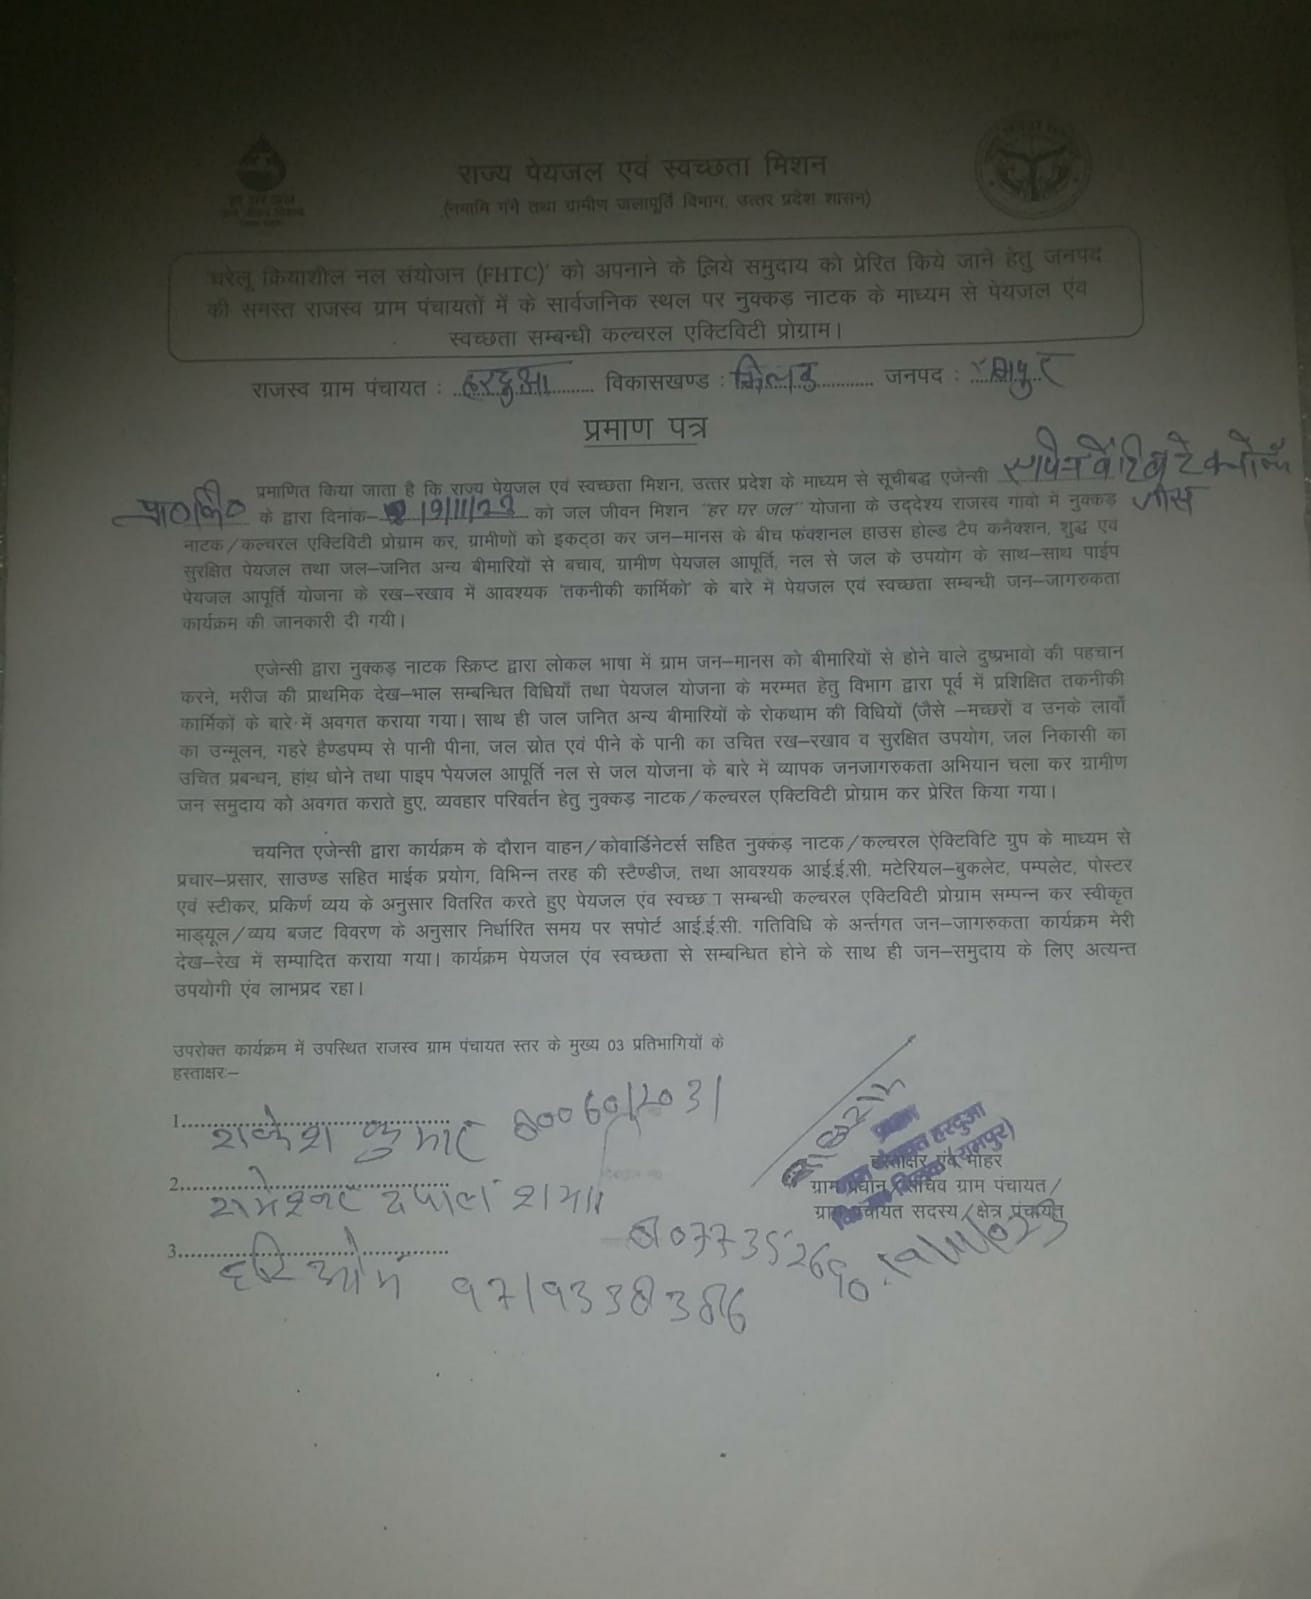 राज्य पेयजल एवं स्वच्छता मिशन
(नमामि गंगे तथा ग्रामीण जलापूर्ति विभाग, उत्तर प्रदेश शासन)
'घरेलू क्रियाशील नल संयोजन (FHTC)' को अपनाने के लिये समुदाय को प्रेरित किये जाने हेतु जनपद
की समस्त राजस्व ग्राम पंचायतों में के सार्वजनिक स्थल पर नुक्कड़ नाटक के माध्यम से पेयजल एंव
स्वच्छता सम्बन्धी कल्चरल एक्टिविटी प्रोग्राम।
राजस्व ग्राम पंचायत : हरदुआ विकासखण्ड : जनपद :
प्रमाण पत्र
प्रमाणित किया जाता है कि राज्य पेयजल एवं स्वच्छता मिशन, उत्तर प्रदेश के माध्यम से सूचीबद्ध एजेन्सी
के द्वारा दिनांक- 19/11/23 को जल जीवन मिशन "हर घर जल" योजना के उद्देश्य राजस्व गांवो में नुक्कड़
नाटक/कल्चरल एक्टिविटी प्रोग्राम कर, ग्रामीणों को इकट्ठा कर जन–मानस के बीच फंक्शनल हाउस होल्ड टैप कनैक्शन, शुद्ध एवं
सुरक्षित पेयजल तथा जल–जनित अन्य बीमारियों से बचाव, ग्रामीण पेयजल आपूर्ति, नल से जल के उपयोग के साथ–साथ पाईप
पेयजल आपूर्ति योजना के रख–रखाव में आवश्यक 'तकनीकी कार्मिको' के बारे में पेयजल एवं स्वच्छता सम्बन्धी जन–जागरुकता
कार्यक्रम की जानकारी दी गयी।
एजेन्सी द्वारा नुक्कड़ नाटक स्क्रिप्ट द्वारा लोकल भाषा में ग्राम जन–मानस को बीमारियों से होने वाले दुष्प्रभावो की पहचान
करने, मरीज की प्राथमिक देख–भाल सम्बन्धित विधियाँ तथा पेयजल योजना के मरम्मत हेतु विभाग द्वारा पूर्व में प्रशिक्षित तकनीकी
कार्मिकों के बारे में अवगत कराया गया। साथ ही जल जनित अन्य बीमारियों के रोकथाम की विधियों (जैसे –मच्छरों व उनके लार्वों
का उन्मूलन, गहरे हैण्डपम्प से पानी पीना, जल स्रोत एवं पीने के पानी का उचित रख–रखाव व सुरक्षित उपयोग, जल निकासी का
उचित प्रबन्धन, हांथ धोने तथा पाइप पेयजल आपूर्ति नल से जल योजना के बारे में व्यापक जनजागरुकता अभियान चला कर ग्रामीण
जन समुदाय को अवगत कराते हुए, व्यवहार परिवर्तन हेतु नुक्कड़ नाटक/कल्चरल एक्टिविटी प्रोग्राम कर प्रेरित किया गया।
चयनित एजेन्सी द्वारा कार्यक्रम के दौरान वाहन/कोवार्डिनेटर्स सहित नुक्कड़ नाटक/कल्चरल ऐक्टिविटि ग्रुप के माध्यम से
प्रचार–प्रसार, साउण्ड सहित माईक प्रयोग, विभिन्न तरह की स्टैण्डीज, तथा आवश्यक आई.ई.सी. मटेरियल–बुकलेट, पम्पलेट, पोस्टर
एवं स्टीकर, प्रकिर्ण व्यय के अनुसार वितरित करते हुए पेयजल एंव स्वच्छता सम्बन्धी कल्चरल एक्टिविटी प्रोग्राम सम्पन्न कर स्वीकृत
माड्यूल/व्यय बजट विवरण के अनुसार निर्धारित समय पर सपोर्ट आई.ई.सी. गतिविधि के अर्न्तगत जन–जागरुकता कार्यक्रम मेरी
देख–रेख में सम्पादित कराया गया। कार्यक्रम पेयजल एंव स्वच्छता से सम्बन्धित होने के साथ ही जन–समुदाय के लिए अत्यन्त
उपयोगी एंव लाभप्रद रहा।
उपरोक्त कार्यक्रम में उपस्थित राजस्व ग्राम पंचायत स्तर के मुख्य 03 प्रतिभागियों के
हस्ताक्षरः–
1. राकेश कुमार
2. रामेश्वर दयाल शर्मा
3. हरिओम
प्रधान
ग्राम पंचायत हरदुआ
(रामपुर)
हस्ताक्षर एंव मोहर
ग्राम प्रधान/सचिव ग्राम पंचायत/
ग्राम पंचायत सदस्य/क्षेत्र पंचायत